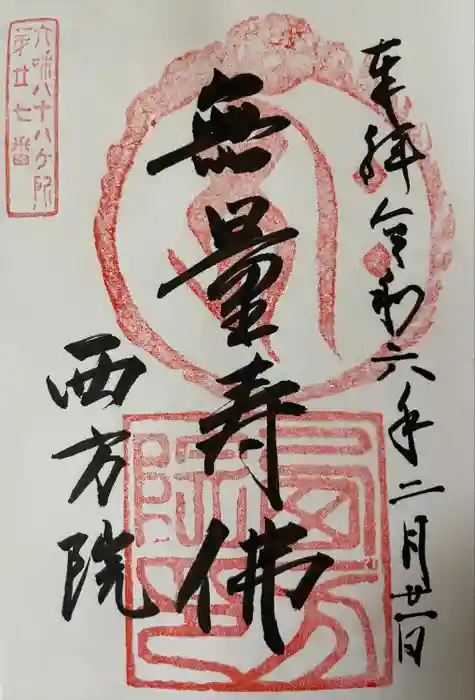 奉拝 令和六年二月廿一日
無量寿佛
西方院
八十八ヶ所
第廿七番